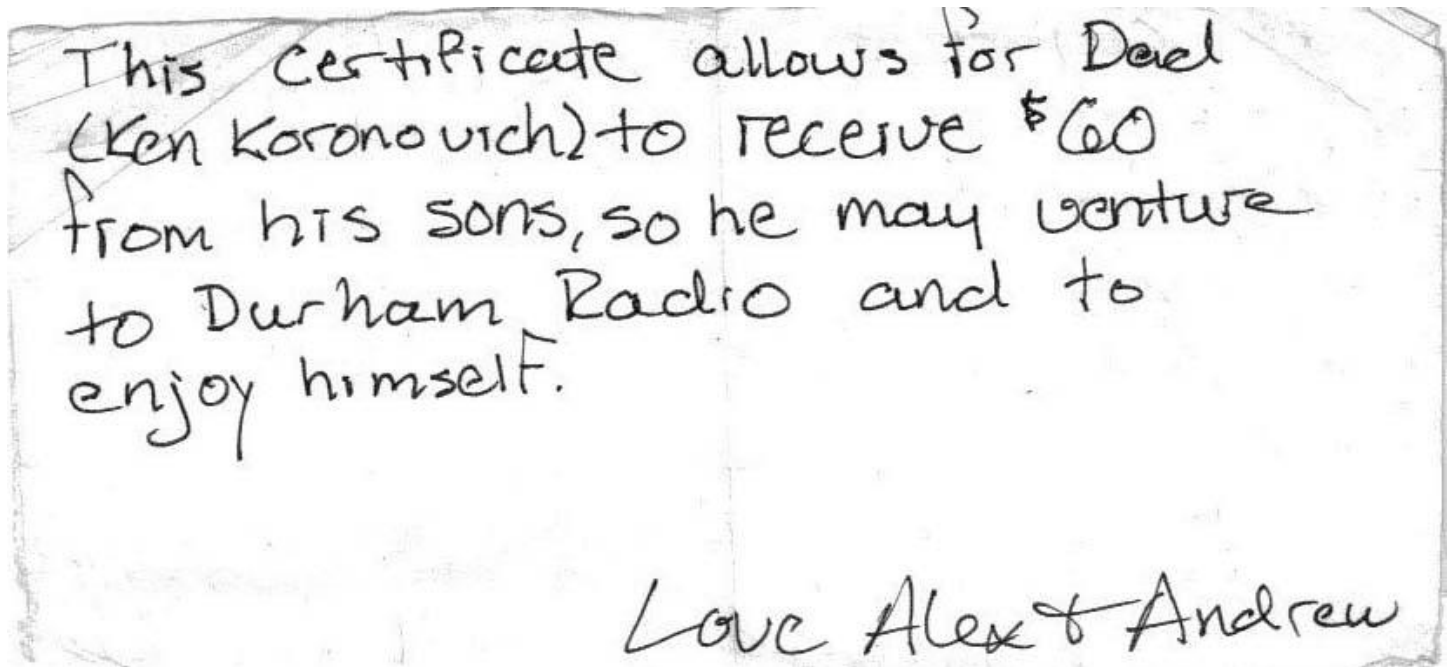 This certificate allows for Dad
(Ken Koronovich) to receive $60
from his sons, so he may venture
to Durham Radio and to
enjoy himself.
Love Alex & Andrew